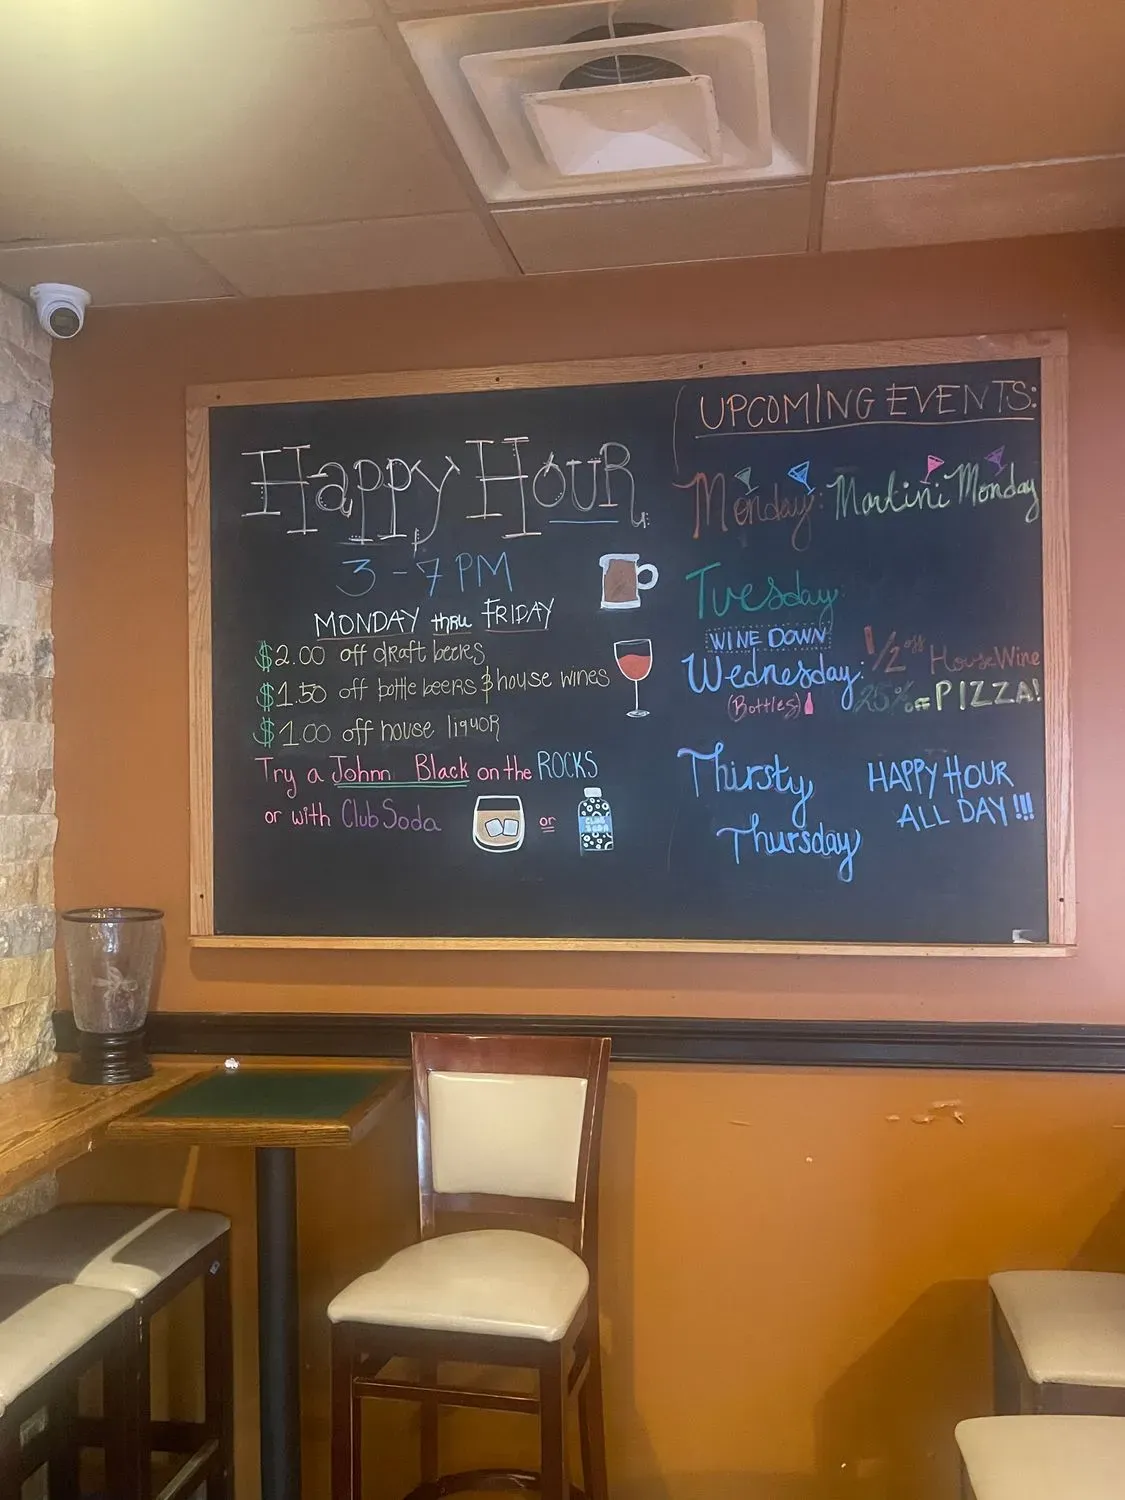 Happy Hour
3-7 PM
MONDAY thru FRIDAY
$2.00 off draft beers
$1.50 off bottle beers & house wines
$1.00 off house liquor
Try a Johnn Black on the ROCKS
or with Club Soda
or
CLUB
SODA
UPCOMING EVENTS:
Monday: Martini Monday
Tuesday:
WINE DOWN
Wednesday: 1/2 off House Wine
(Bottles) 25% off PIZZA!
Thirsty HAPPY HOUR
Thursday ALL DAY!!!